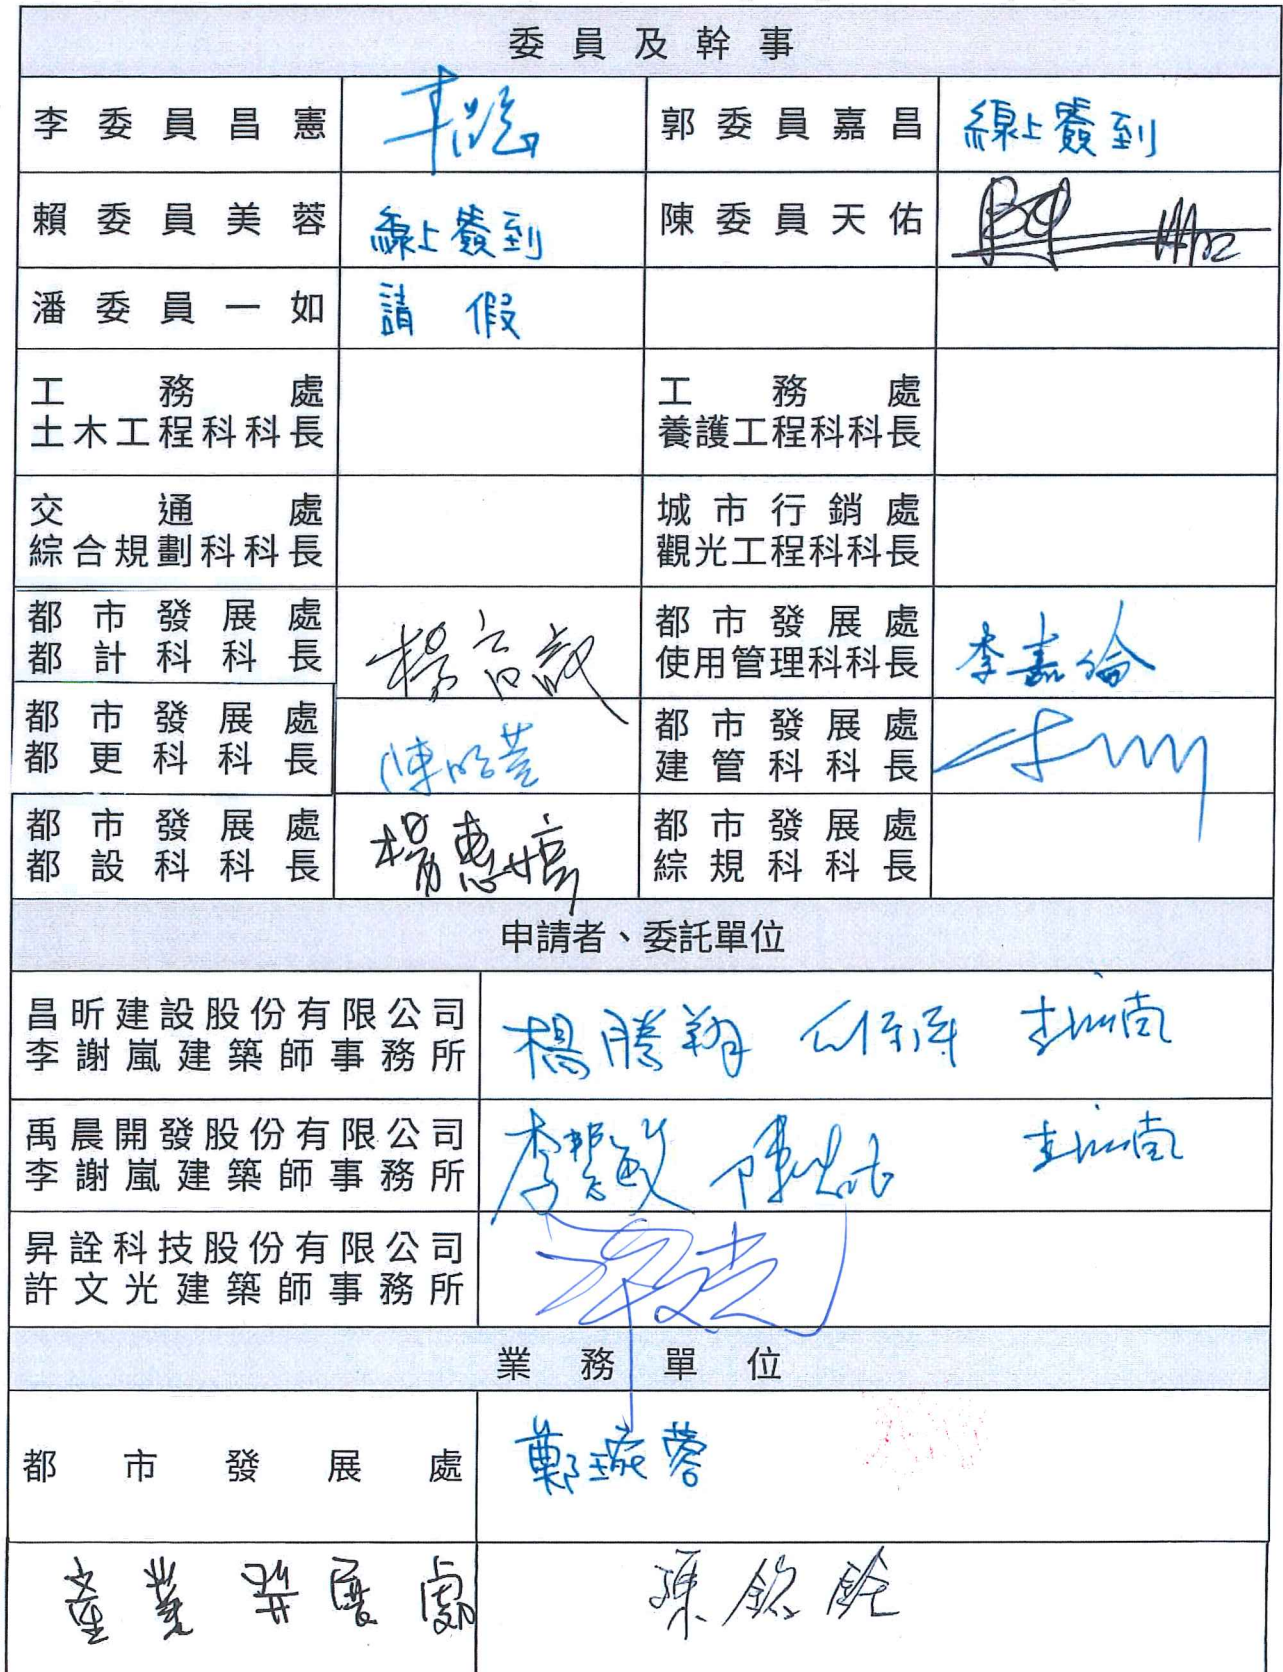 委員及幹事
李委員昌憲
郭委員嘉昌 線上簽到
賴委員美蓉 線上簽到
陳委員天佑
潘委員一如 請假
工務處
土木工程科科長
工務處
養護工程科科長
交通處
綜合規劃科科長
城市行銷處
觀光工程科科長
都市發展處
都計科科長
都市發展處
使用管理科科長
李嘉倫
都市發展處
都更科科長
都市發展處
建管科科長
都市發展處
都設科科長
楊惠
都市發展處
綜規科科長
申請者、委託單位
昌昕建設股份有限公司
李謝嵐建築師事務所
楊勝翔
禹晨開發股份有限公司
李謝嵐建築師事務所
昇詮科技股份有限公司
許文光建築師事務所
業務單位
都市發展處
鄭琬蓉
產業發展處